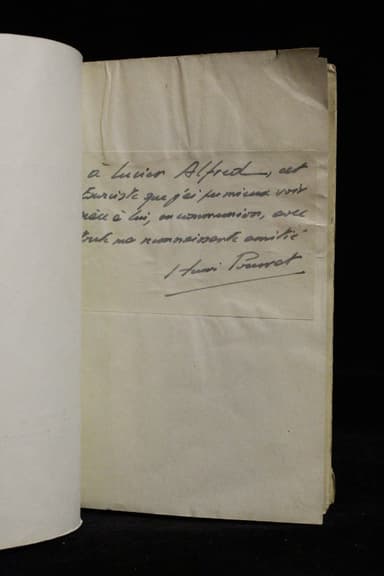 à Lucien Alfred, cet
Exorciste que j'ai pu mieux voir
grâce à lui, en communion, avec
toute ma reconnaissante amitié
Henri Pourrat